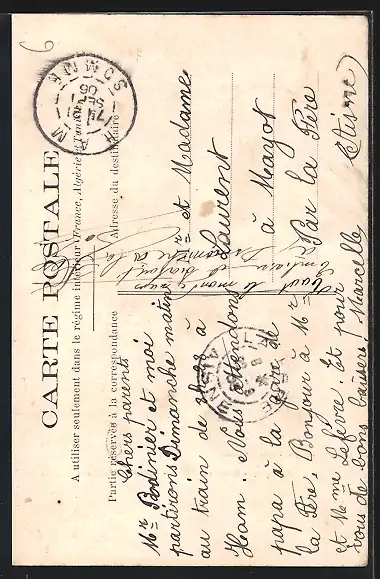 CARTE POSTALE
A utiliser seulement dans le régime intérieur (France, Algérie et Tunisie)
Partie réservée à la correspondance
Adresse du destinataire
HAM
SOMME
Chers parents
Mr Perdinier et moi
partirons Dimanche matin
au train de à
Ham. Nous attendons
papa à la gare de
la Fère. Bonjour à Mr
et Mme Lefèvre. Et pour
vous de bons baisers Marcelle
Mr et Madame
Laurent
à Mayot
Par la Fère
(Aisne)
Tout le monde